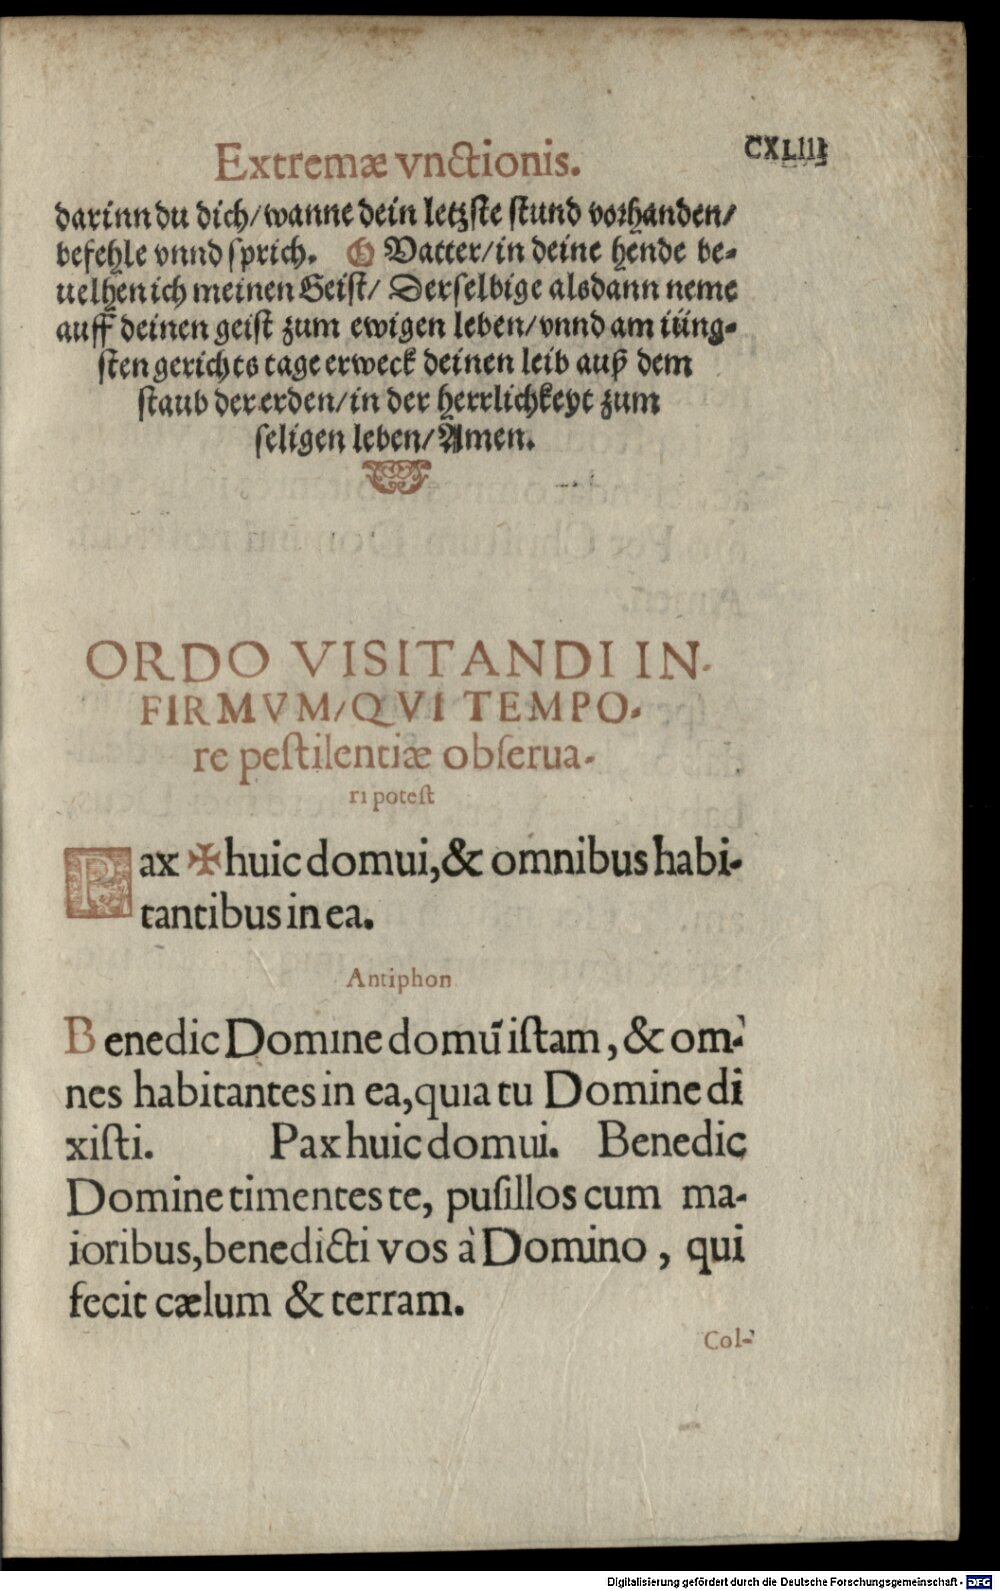 Extremæ vnctionis.
CXLIII
darinn du dich/wanne dein letzste stund vorhanden/
befehle vnnd sprich. O Vatter/in deine hende be-
uelhen ich meinen Geist/ Derselbige alsdann neme
auff deinen geist zum ewigen leben/vnnd am iüng-
sten gerichts tage erweck deinen leib auß dem
staub der erden/in der herrlichkeyt zum
seligen leben/Amen.
ORDO VISITANDI IN-
FIRMVM/QVI TEMPO-
re pestilentiæ obserua-
ri potest
Pax ✠ huic domui,& omnibus habi-
tantibus in ea.
Antiphon
Benedic Domine domū istam, & om-
nes habitantes in ea,quia tu Domine di
xisti. Pax huic domui. Benedic
Domine timentes te, pusillos cum ma-
ioribus,benedicti vos à Domino, qui
fecit cælum & terram.
Col-
Digitalisierung gefördert durch die Deutsche Forschungsgemeinschaft - DFG